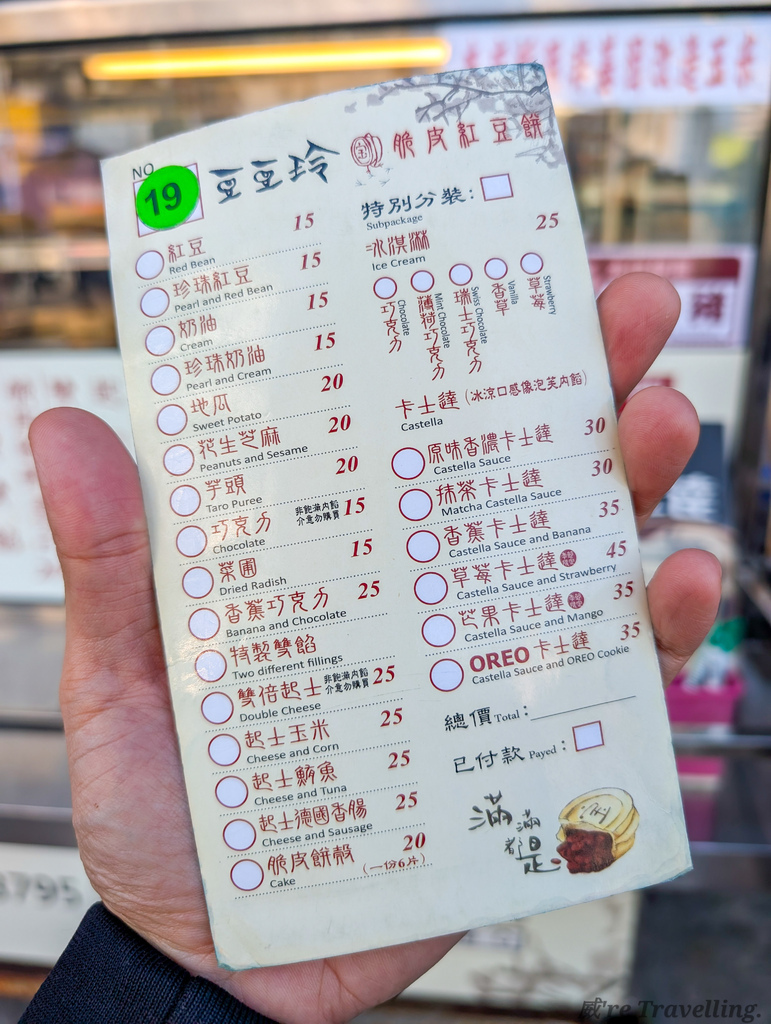 NO
19
豆豆玲
脆皮紅豆餅
紅豆 15
Red Bean
珍珠紅豆 15
Pearl and Red Bean
奶油 15
Cream
珍珠奶油 15
Pearl and Cream
地瓜 20
Sweet Potato
花生芝麻 20
Peanuts and Sesame
芋頭 20
Taro Puree
巧克力 非飽滿內餡 介意勿購買 15
Chocolate
菜圃 15
Dried Radish
香蕉巧克力 25
Banana and Chocolate
特製雙餡
Two different fillings
雙倍起士 非飽滿內餡 介意勿購買 25
Double Cheese
起士玉米 25
Cheese and Corn
起士鮪魚 25
Cheese and Tuna
起士德國香腸 25
Cheese and Sausage
脆皮餅殼 20
Cake (一份6片)
特別分裝:
Subpackage
冰淇淋 25
Ice Cream
巧克力 Chocolate
薄荷巧克力 Mint Chocolate
瑞士巧克力 Swiss Chocolate
香草 Vanilla
草莓 Strawberry
卡士達 (冰涼口感像泡芙內餡)
Castella
原味香濃卡士達 30
Castella Sauce
抹茶卡士達 30
Matcha Castella Sauce
香蕉卡士達 35
Castella Sauce and Banana
草莓卡士達 45
Castella Sauce and Strawberry
芒果卡士達 35
Castella Sauce and Mango
OREO卡士達 35
Castella Sauce and OREO Cookie
總價 Total:
已付款 Payed:
滿滿都是
3795
威're Travelling.